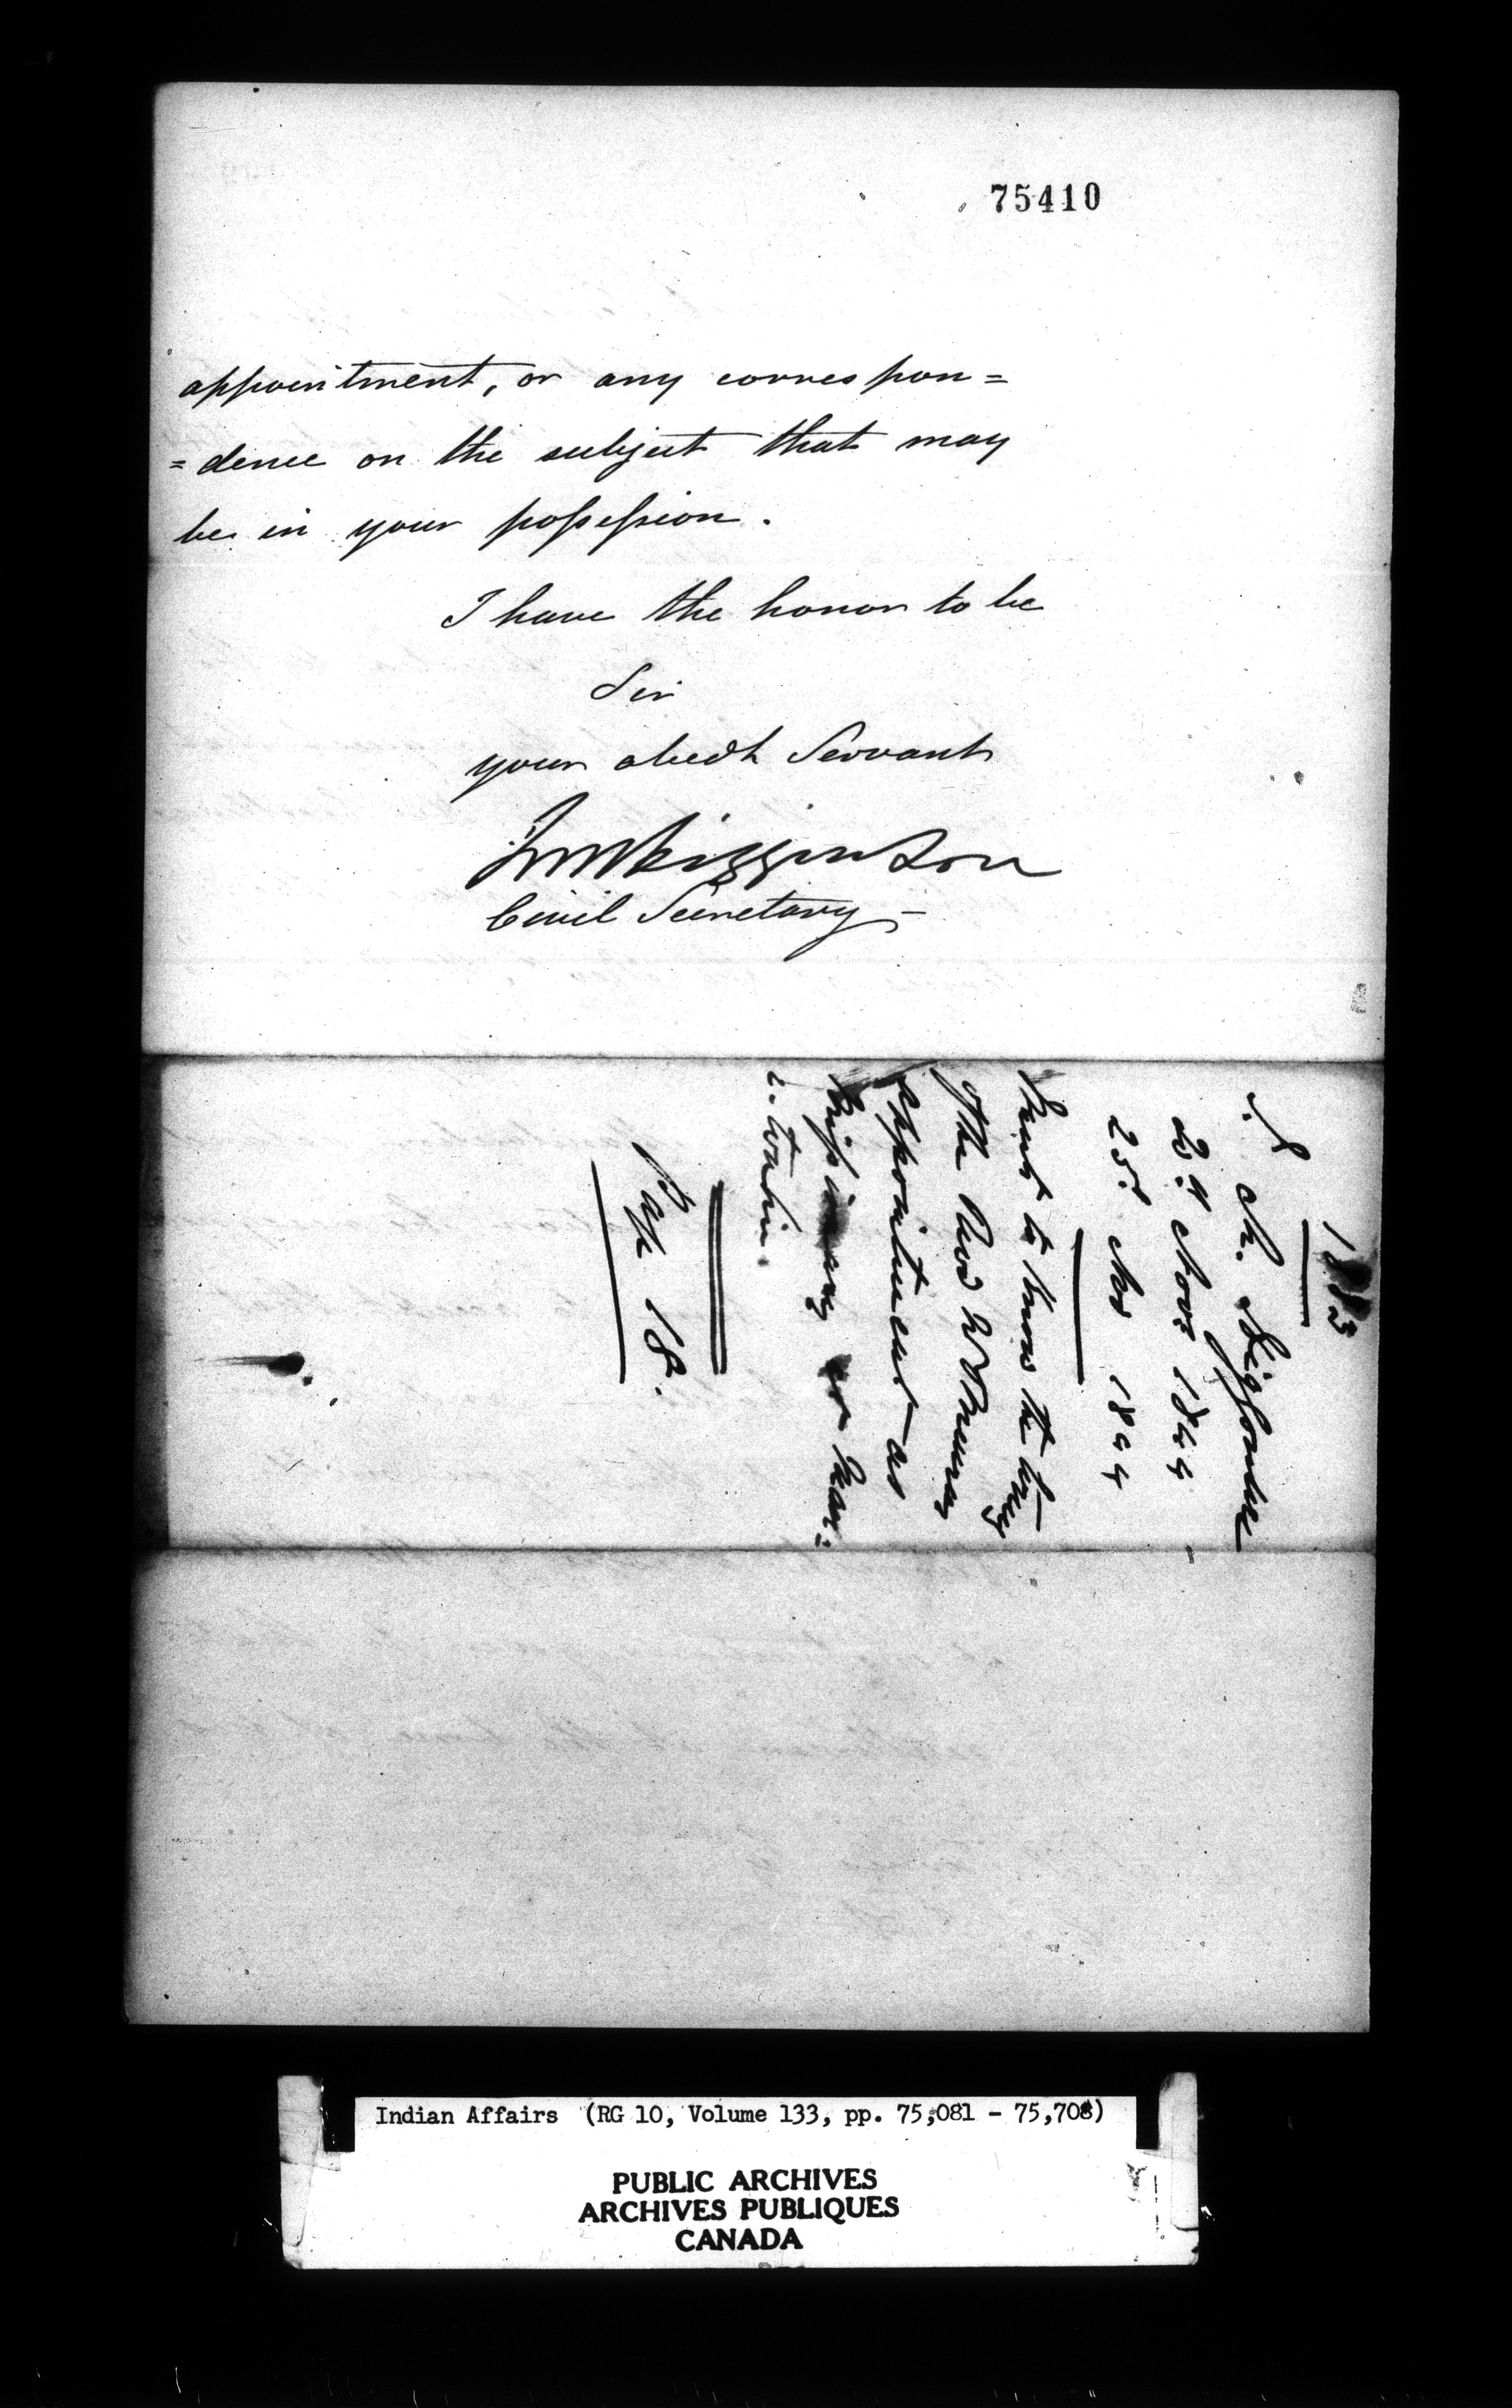 75410
appointment, or any correspon=
=dence on the subject that may
be in your possession.
I have the honor to be
Sir
your obedt Servant
JMHigginson
Civil Secretary
1883
J. M. Higginson
23d Novr 1844
25. Nov 1844
Want to know the
of the Revd
appointment as
Missionary at Man:
:itwalin.
Pap 18.
Indian Affairs (RG 10, Volume 133, pp. 75,081 - 75,708)
PUBLIC ARCHIVES
ARCHIVES PUBLIQUES
CANADA